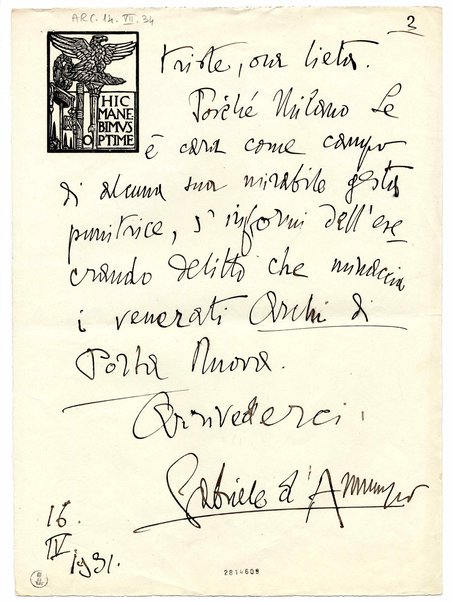 ARC. 14. VII. 34
2
HIC
MANE
BIMVS
OPTIME
triste, ora lieta.
Poiché Milano Le
è cara come campo
di alcuna sua mirabile gesta
punitrice, s'informi dell'ese-
crando delitto che minaccia
i venerati Archi di
Porta Nuova.
Arrivederci.
Gabriele d'Annunzio
16.
IV
1931.
2814609